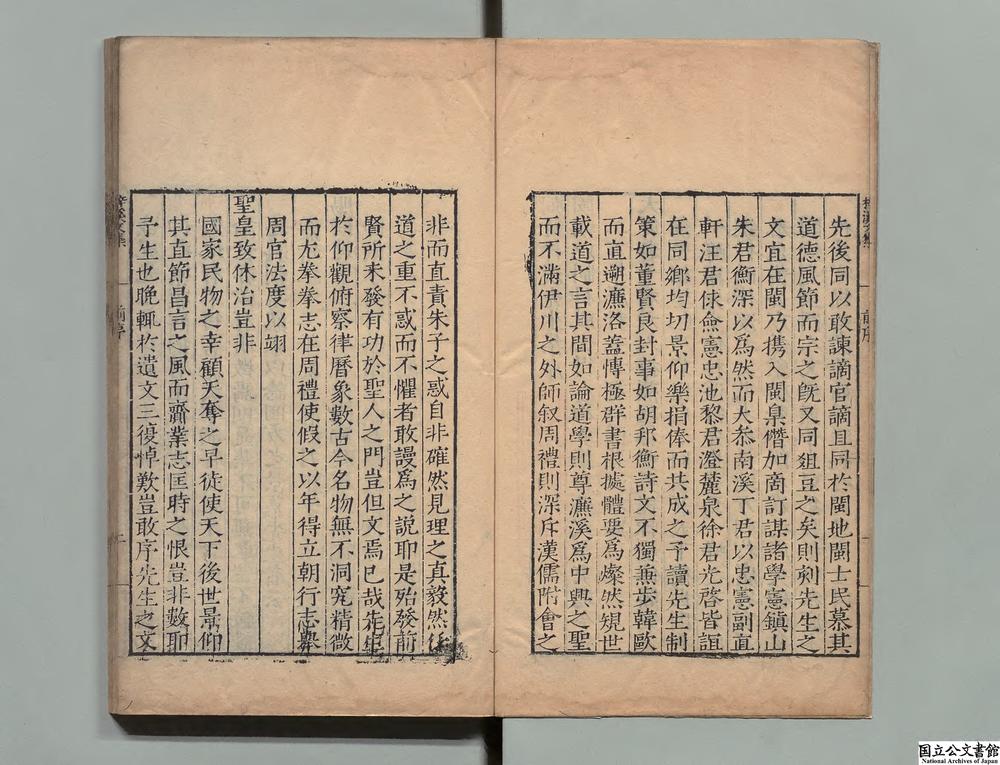 先後同以敢諫謫官謫且同於閩地閩士民慕其
道德風節而宗之旣又同俎豆之矣則刻先生之
文宜在閩乃携入閩臬僭加啇訂謀諸學憲鎮山
朱君衡深以爲然而大叅南溪丁君以忠憲副直
軒汪君俅僉憲忠池黎君澄麓泉徐君光啓皆誼
在同鄉均切景仰樂捐俸而共成之予讀先生制
策如董賢良封事如胡邦衡詩文不獨兼步韓歐
而直遡濂洛蓋慱極群書根據體要爲燦然覌世
載道之言其間如論道學則尊濂溪爲中興之聖
而不滿伊川之外師叙周禮則深斥漢儒附會之
非而直責朱子之惑自非確然見理之真毅然後
道之重不惑而不懼者敢謾爲之説耶是殆發前
賢所未發有功於聖人之門豈但文焉已哉先生
於仰觀俯察律曆象數古今名物無不洞究精微
而尤拳拳志在周禮使假之以年得立朝行志舉
周官法度以翊
聖皇致休治豈非
國家民物之幸顧天奪之早徒使天下後世景仰
其直節昌言之風而齎業志匡時之恨豈非數耶
予生也晚輒於遺文三復悼歎豈敢序先生之文
前序
國立公文書館
National Archives of Japan